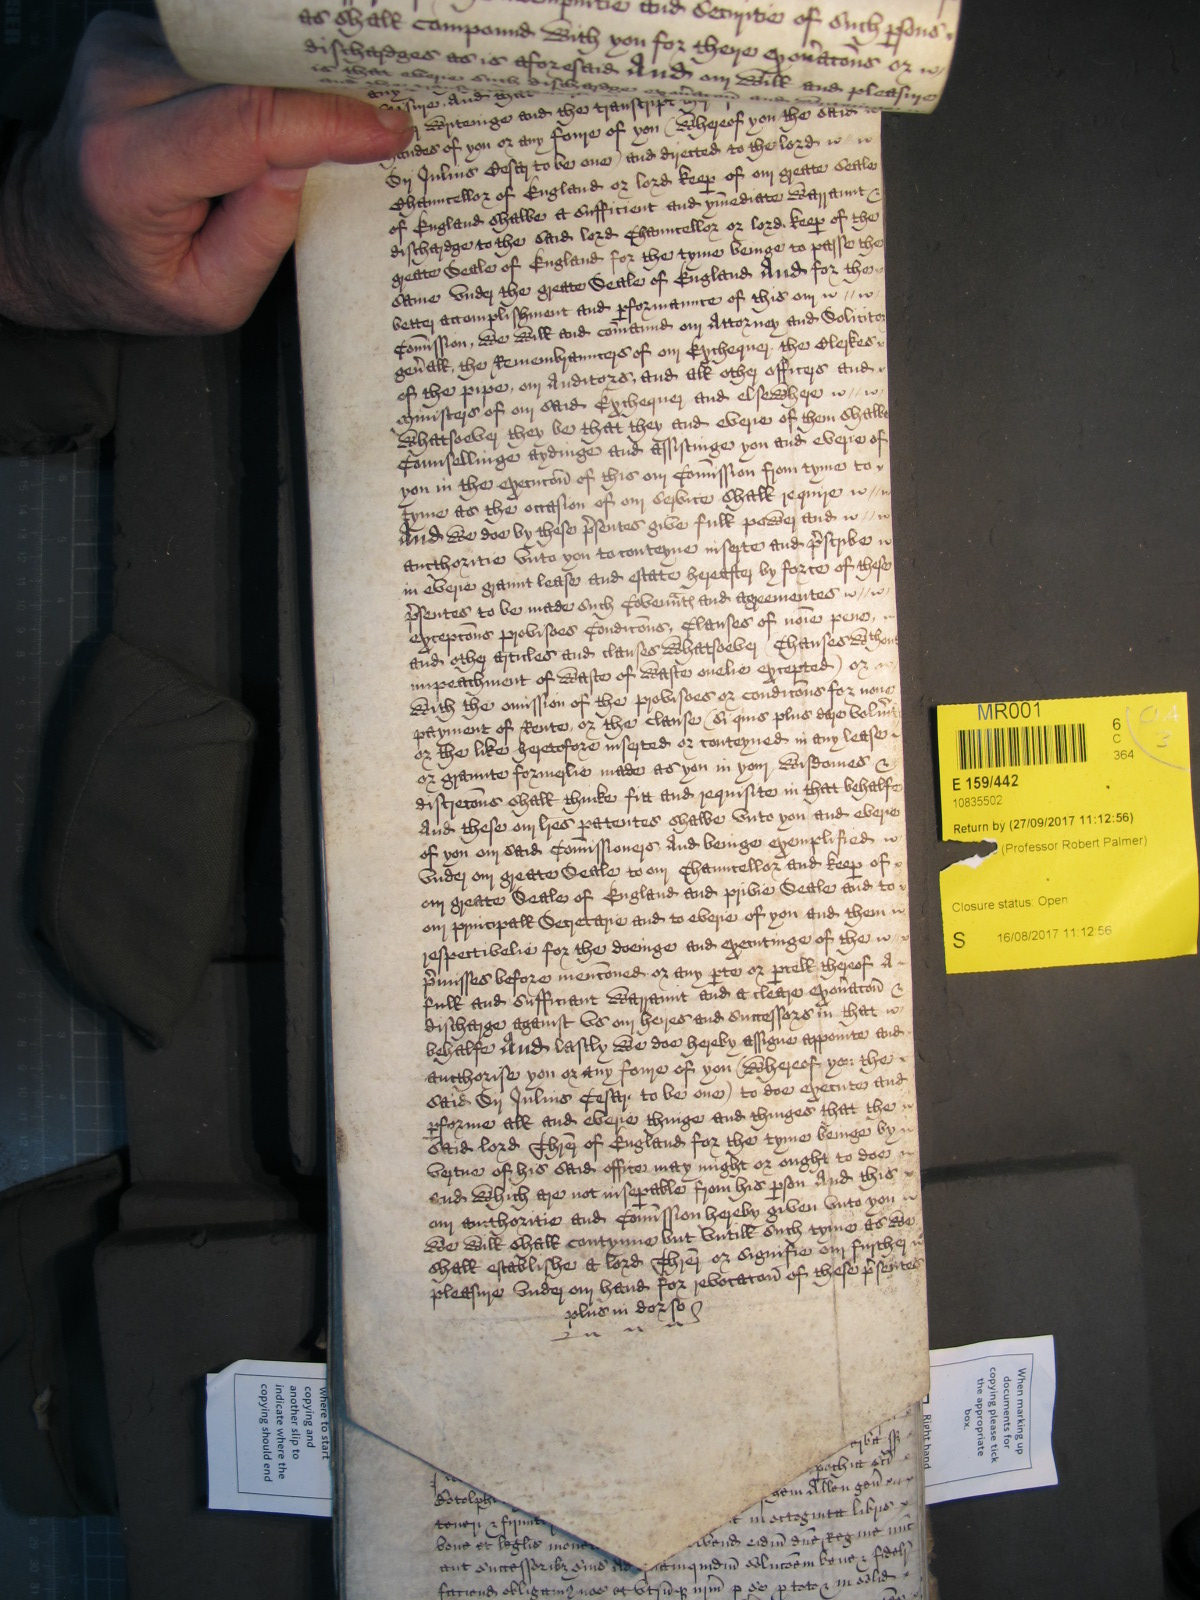 and Securitie of such p̱sons
as shall compound with you for there exon̄acōns or
dischardges as is aforesaid And our will and pleasure
is that everie such dischardge
any
And that
writeinge and the transcript
handes of you or any fower of you (whereof you the said
Sir Julius Cesar to be one) and directed to the lord
Chauncellor of England or lord keep̱ of our greate Seale
of England shalbe a sufficient and ym̄ediate warraunt &
dischardge to the said lord Chauncellor or lord keep̱ of the
greate Seale of England for the tyme beinge to passe the
same under the greate Seale of England And for the
better accomplishment and p̱formaunce of this our
Com̄ission, we will and com̄aund our Attorney and Sollicitor
gen̄all, the Remembrauncers of our Exchequer the Clerkes
of the pipe, our Auditors, and all other officers and
ministers of our said Exchequer and elsewhere
whatsoever they be that they and everie of them shalbe
Counsellinge aydinge and assistinge you and everie of
you in the execucōn of this our Com̄ission from tyme to
tyme as the occasion of our service shall require
And we doe by these p̄sentes give full power and
authoritie unto you to conteyne inserte and p̄scribe
in everie graunt lease and estate hereafter by force of these
p̄sentes to be made such Coven̄ts and agreementes
excepcōns provisoes Condicōns, Clauses of noīe pene,
and other articles and clauses whatsoever (Clauses without
impeachment of waste of waste onelie excepted) or
with the omission of the provisoes or condicōns for none
payment of Rente, or the clause (Si quis plus dare volu͠it
or the like heretofore inserted or conteyned in any lease
or graunte formerlie made as you in your wisdomes &
discrecōns shall thinke fitt and requisite in that behalfe
And these our l̄res patentes shalbe unto you and everie
of you our said Com̄issioners And beinge exemplified
under our greate Seale to our Chauncellor and keep̱ of
our greate Seale of England and privie Seale and to
our principall Secretarie and to everie of you and them
respectivelie for the doeinge and executinge of the
p̄misses before mencōned or any p̱te or p̱cell thereof A
full and sufficient warraunt and a cleare exon̄acōn &
discharge against us our heires and successors in that
behalfe And lastly we doe hereby assigne appointe and
authorise you or any fower of you (whereof you the
said Sir Julius Cesar to be one) to doe execute and
p̱forme all and everie thinge and thinges that the
said lord Thr̄er of England for the tyme beinge by
vertue of his said office may might or ought to doe
and which are not insep̱able from his p̱son And this
our authoritie and Com̄ission hereby given unto you
we will shall contynue but untill such tyme as we
shall establishe a lord Thr̄er or signifie our further
pleasure under our hand for revocacōn of these p̄sentes
plus in dorso
MR001
6
C
364
E 159/442
10835502
Return by (27/09/2017 11:12:56)
(Professor Robert Palmer)
Closure status: Open
S 16/08/2017 11:12:56
where to start
copying and
another slip to
indicate where the
copying should end
When marking up
documents for
copying please tick
the appropriate
box.
Right hand
in octoginta libris
bone et leglis monet
aut successoribz suis